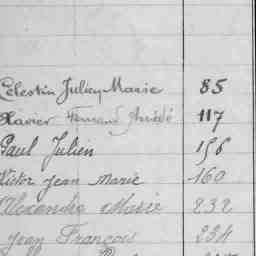 Célestin Julien Marie 85
Xavier Fernand Amédé 117
Paul Julien 156
Victor Jean Marie 160
Alexandre Marie 232
Jean François 234